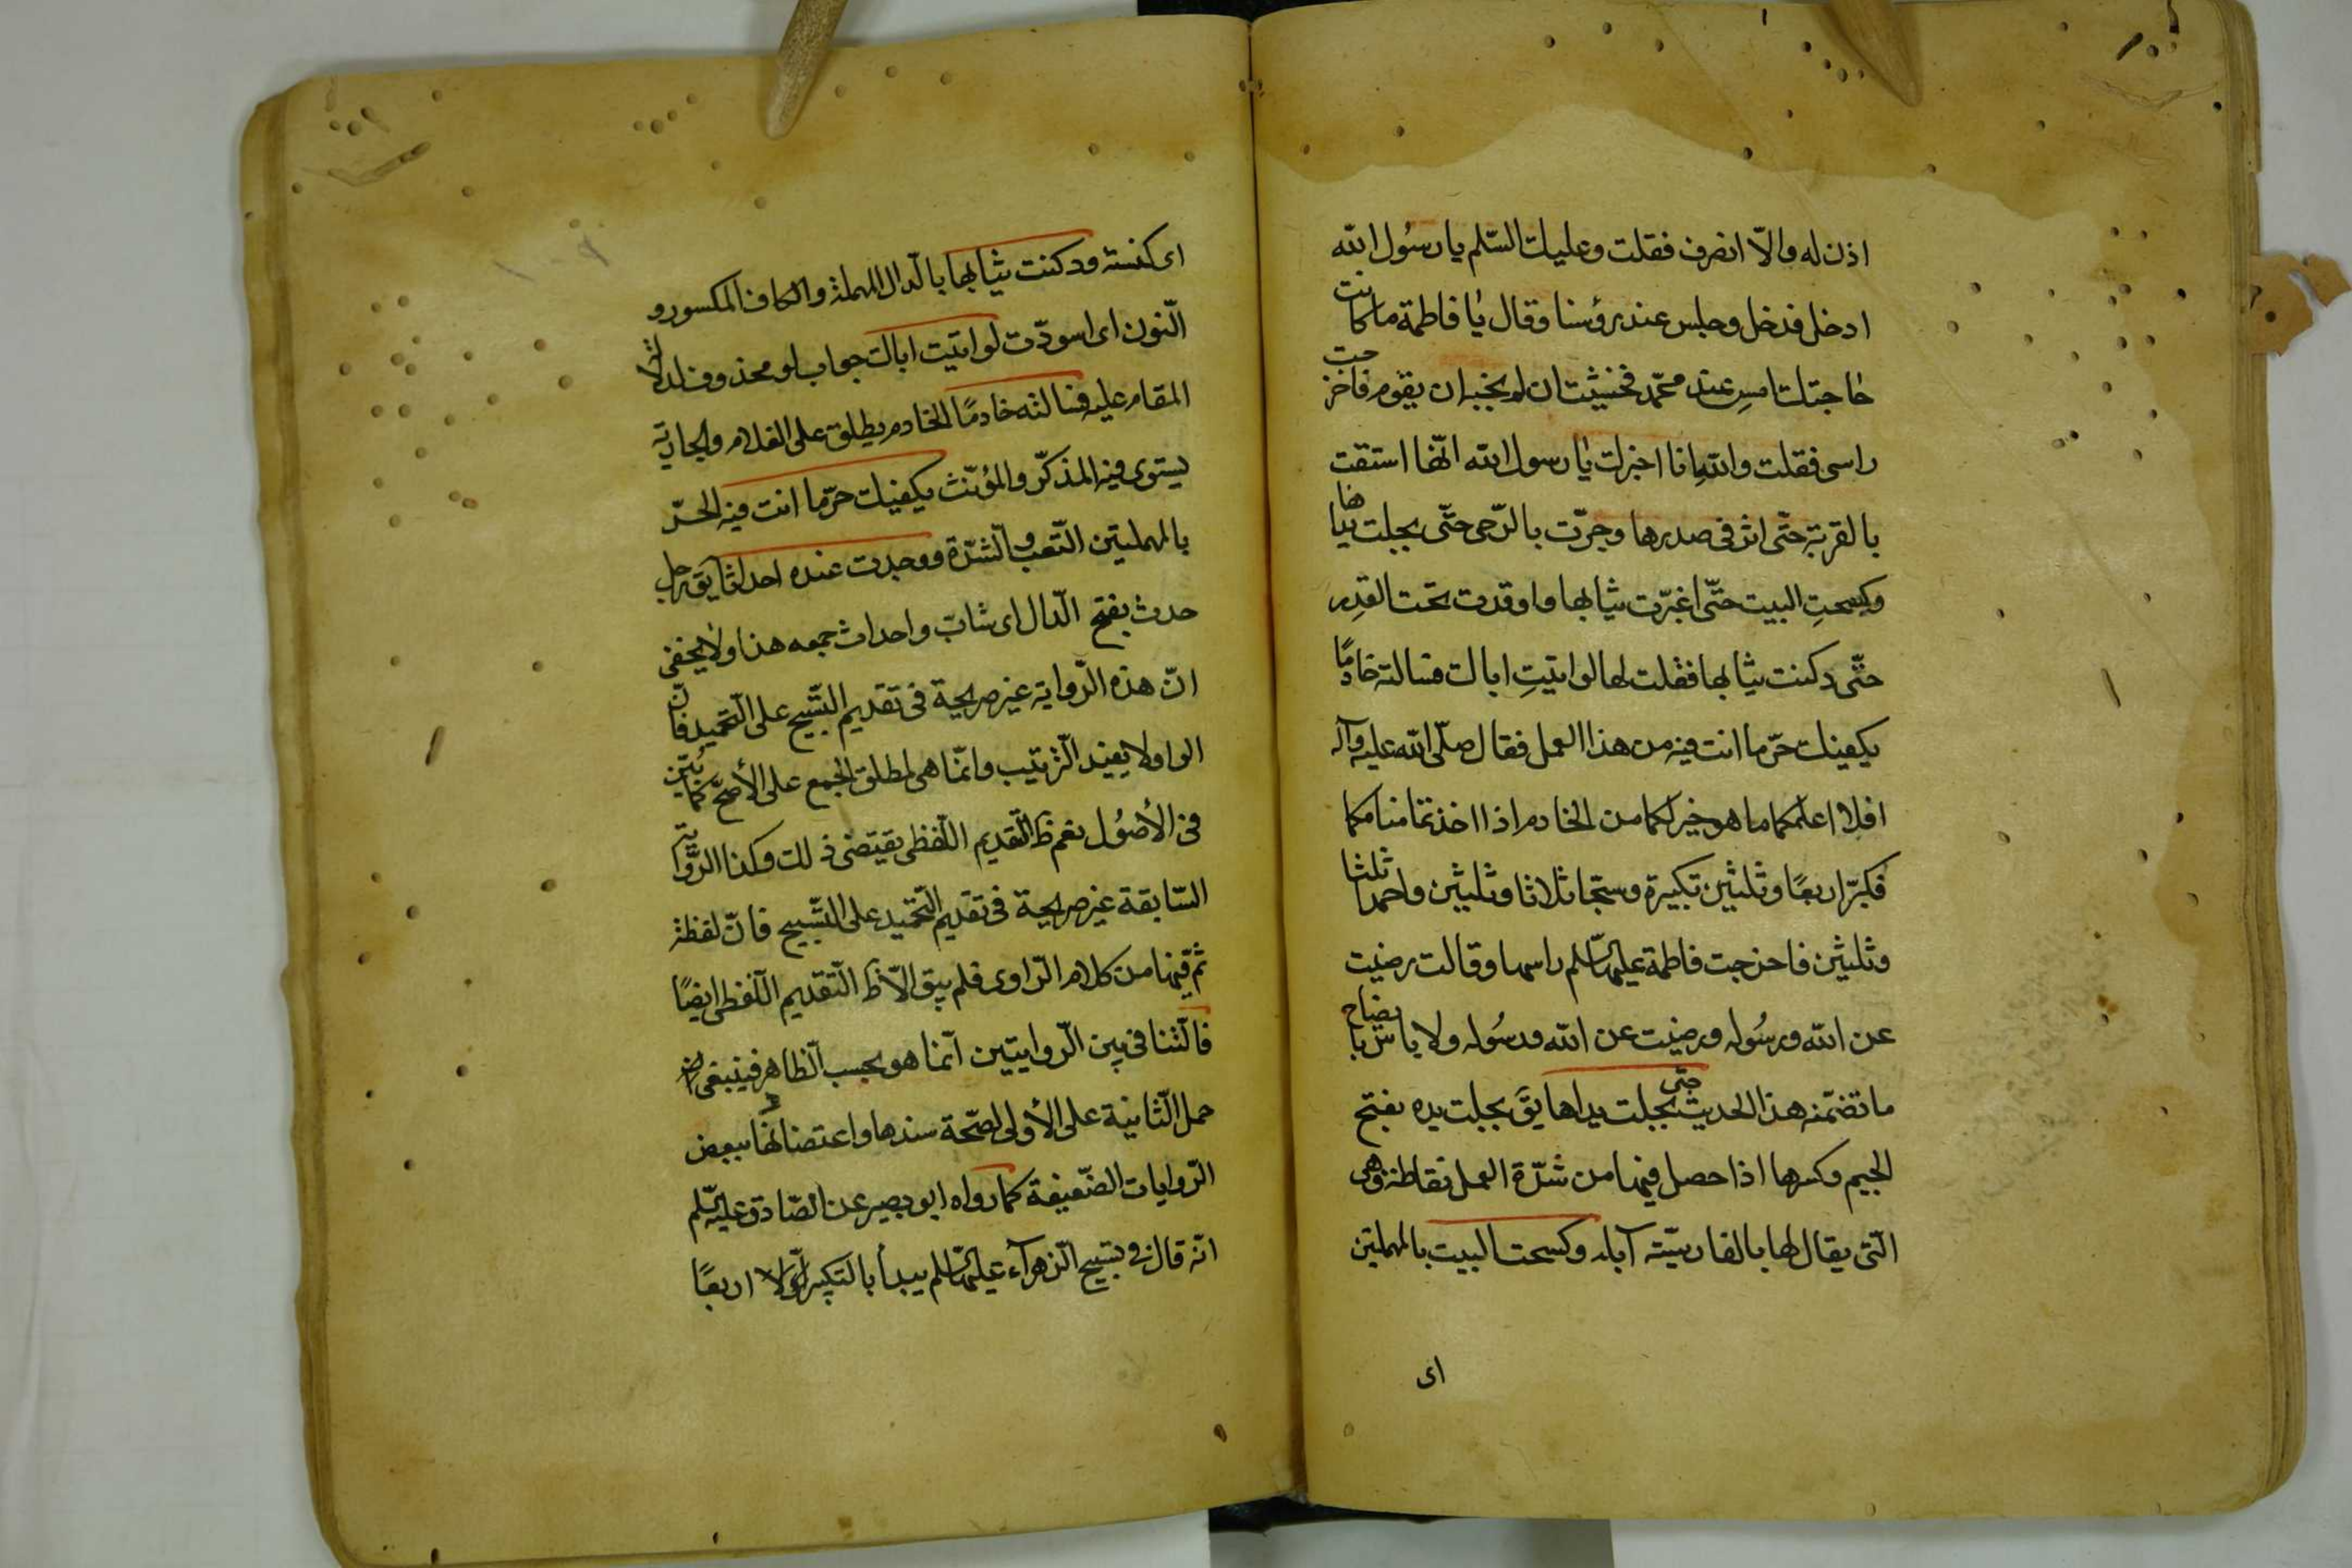 اذن له والّا انصرف فقلت وعليك السّلم يا رسُول الله
ادخل فدخل وجلس عند رؤسنا وقال يا فاطمة ما كانت
حاجتك امسِ عند محمّد فخشيت ان لم نجبه ان يقوم فاخرجت
راسى فقلت والله انا اخبرك يا رسول الله انّها استقت
بالقربة حتّى اثر فى صدرها وجرّت بالرّحى حتّى مجلت يداها
وكسحتِ البيت حتّى اغبرّت ثيابها واوقدت تحت القدِر
حتّى دكنت ثيابها فقلت لها لو اتيتِ اباك فسالته خادمًا
يكفيك حرّ ما انت فيه من هذا العمل فقال صلّى الله عليه وآله
افلا اعلمكما ما هو خير لكما من الخادم اذا اخذتما منامكما
فكبّرا اربعًا وثلثين تكبيرة وسبّحا ثلاثا وثلثين واحمدا ثلثا
وثلثين فاخرجت فاطمة عليها السّلم راسها وقالت رضيت
عن الله ورسُوله ورضيت عن الله ورسُوله ولا باس بايضاح
ما تضمّنه هذا الحديث حتى مجلت يداها يقَ مجلت يده بفتح
الجيم وكسرها اذا حصل فيها من شدّة العمل نفاطة وهى
الّتى يقال لها بالفارسيّة آبله وكسحت البيت بالمهملتين
اى
اى كنسته ودكنت ثيابها بالدال المهملة والكاف المكسورة و
النّون اى اسودّت لو اتيت اباك جواب لو محذوف لدلالة
المقام عليه فسالته خادمًا الخادم يطلق على الغلام والجارية
يستوى فيه المذكّر والمؤنّث يكفيك حرّ ما انت فيه الحرّ
بالمهملتين التّعب والشدّة ووجدت عنده احداثا يقَ رجل
حدث بفتح الدّال اى شابّ واحداث جمعه هذا ولا يخفى
انّ هذه الرّواية غير صريحة فى تقديم التّسبيح على التّحميد فانّ
الواو لا يفيد التّرتيب وانّما هى لمطلق الجمع على الأصحّ كما بُيّن
فى الأصُول نعم ظَ التّقديم اللّفظى يقتضى ذلك وكذا الرّواية
السّابقة غير صريحة فى تقديم التّحميد على التّسبيح فانّ لفظة
ثمّ فيها من كلام الرّاوى فلم يبق الّا ظَ التّقديم اللّفظى ايضًا
فالتّنافى بين الرّوايتين انّما هو بحسب الظّاهر فينبغى
حمل الثّانية على الأولى لصحّة سندها واعتضادها ببعض
الرّوايات الضّعيفة كما رواه ابو بصير عن الصّادق عليه السّلم
انّه قال فى تسبيح الزّهرآء عليها السّلم يبدأ بالتّكبير اوّلا اربعًا